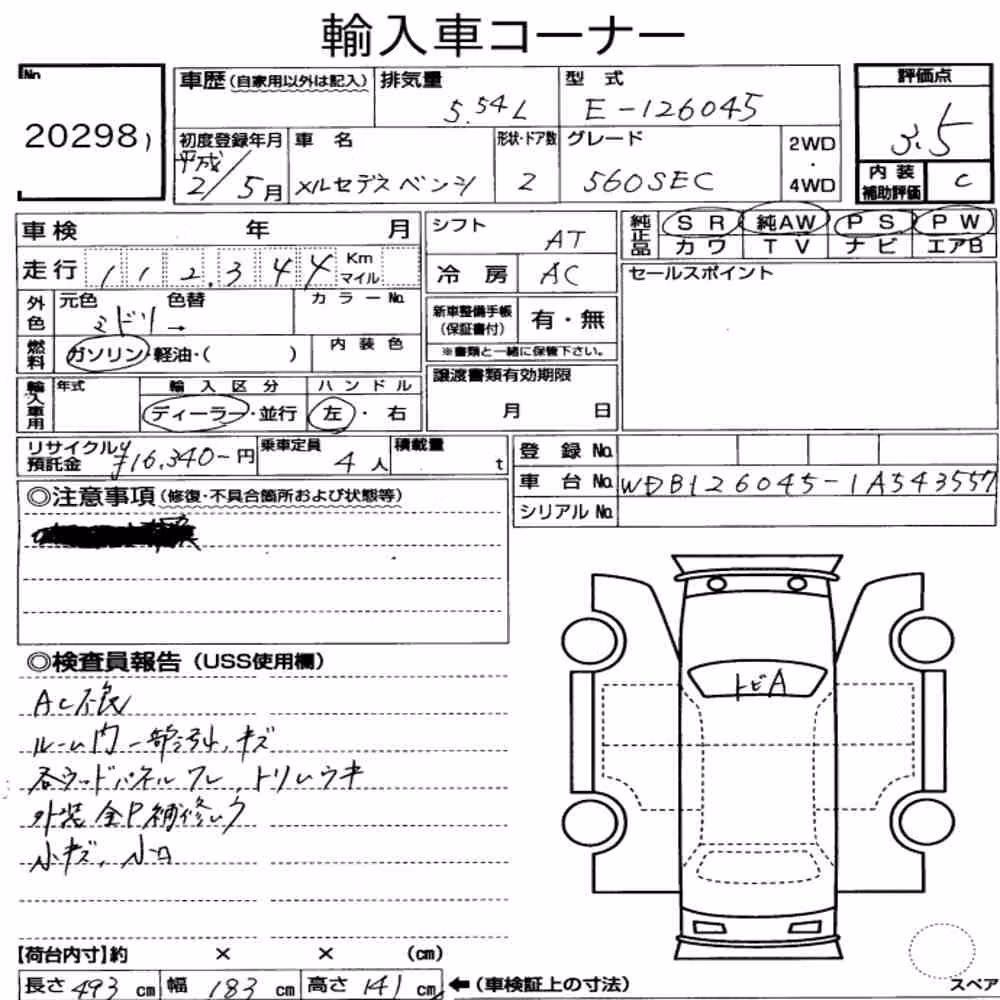 輸入車コーナー
No
20298)
車歴(自家用以外は記入)
排気量
5.54L
型式
E-126045
評価点
3.5
内装補助評価
C
初度登録年月
平成
2/5月
車名
メルセデス ベンツ
形状・ドア数
2
グレード
560SEC
2WD
・
4WD
車検 年 月
走行 112.344 Km マイル
シフト AT
冷房 AC
純正品
SR 純AW PS PW
カワ TV ナビ エアB
セールスポイント
外色
元色 色替 カラーNo.
ミドリ →
新車整備手帳(保証書付)
有・無
※書類と一緒に保管下さい。
燃料
ガソリン・軽油・( )
内装色
譲渡書類有効期限
月 日
輸入車用
年式
輸入区分
ハンドル
ディーラー・並行
左・右
リサイクル預託金
¥16,340-円
乗車定員
4人
積載量
t
登録No.
車台No. WDB126045-1A543557
シリアルNo.
◎注意事項(修復・不具合箇所および状態等)
◎検査員報告(USS使用欄)
AC不良
ルーム内一部汚れ、キズ
各ウッドパネルワレ、トリムウキ
外装全P補修レク
小キズ、小凹
トビA
【荷台内寸】約 × × (cm)
長さ493cm 幅183cm 高さ141cm ←(車検証上の寸法)
スペア